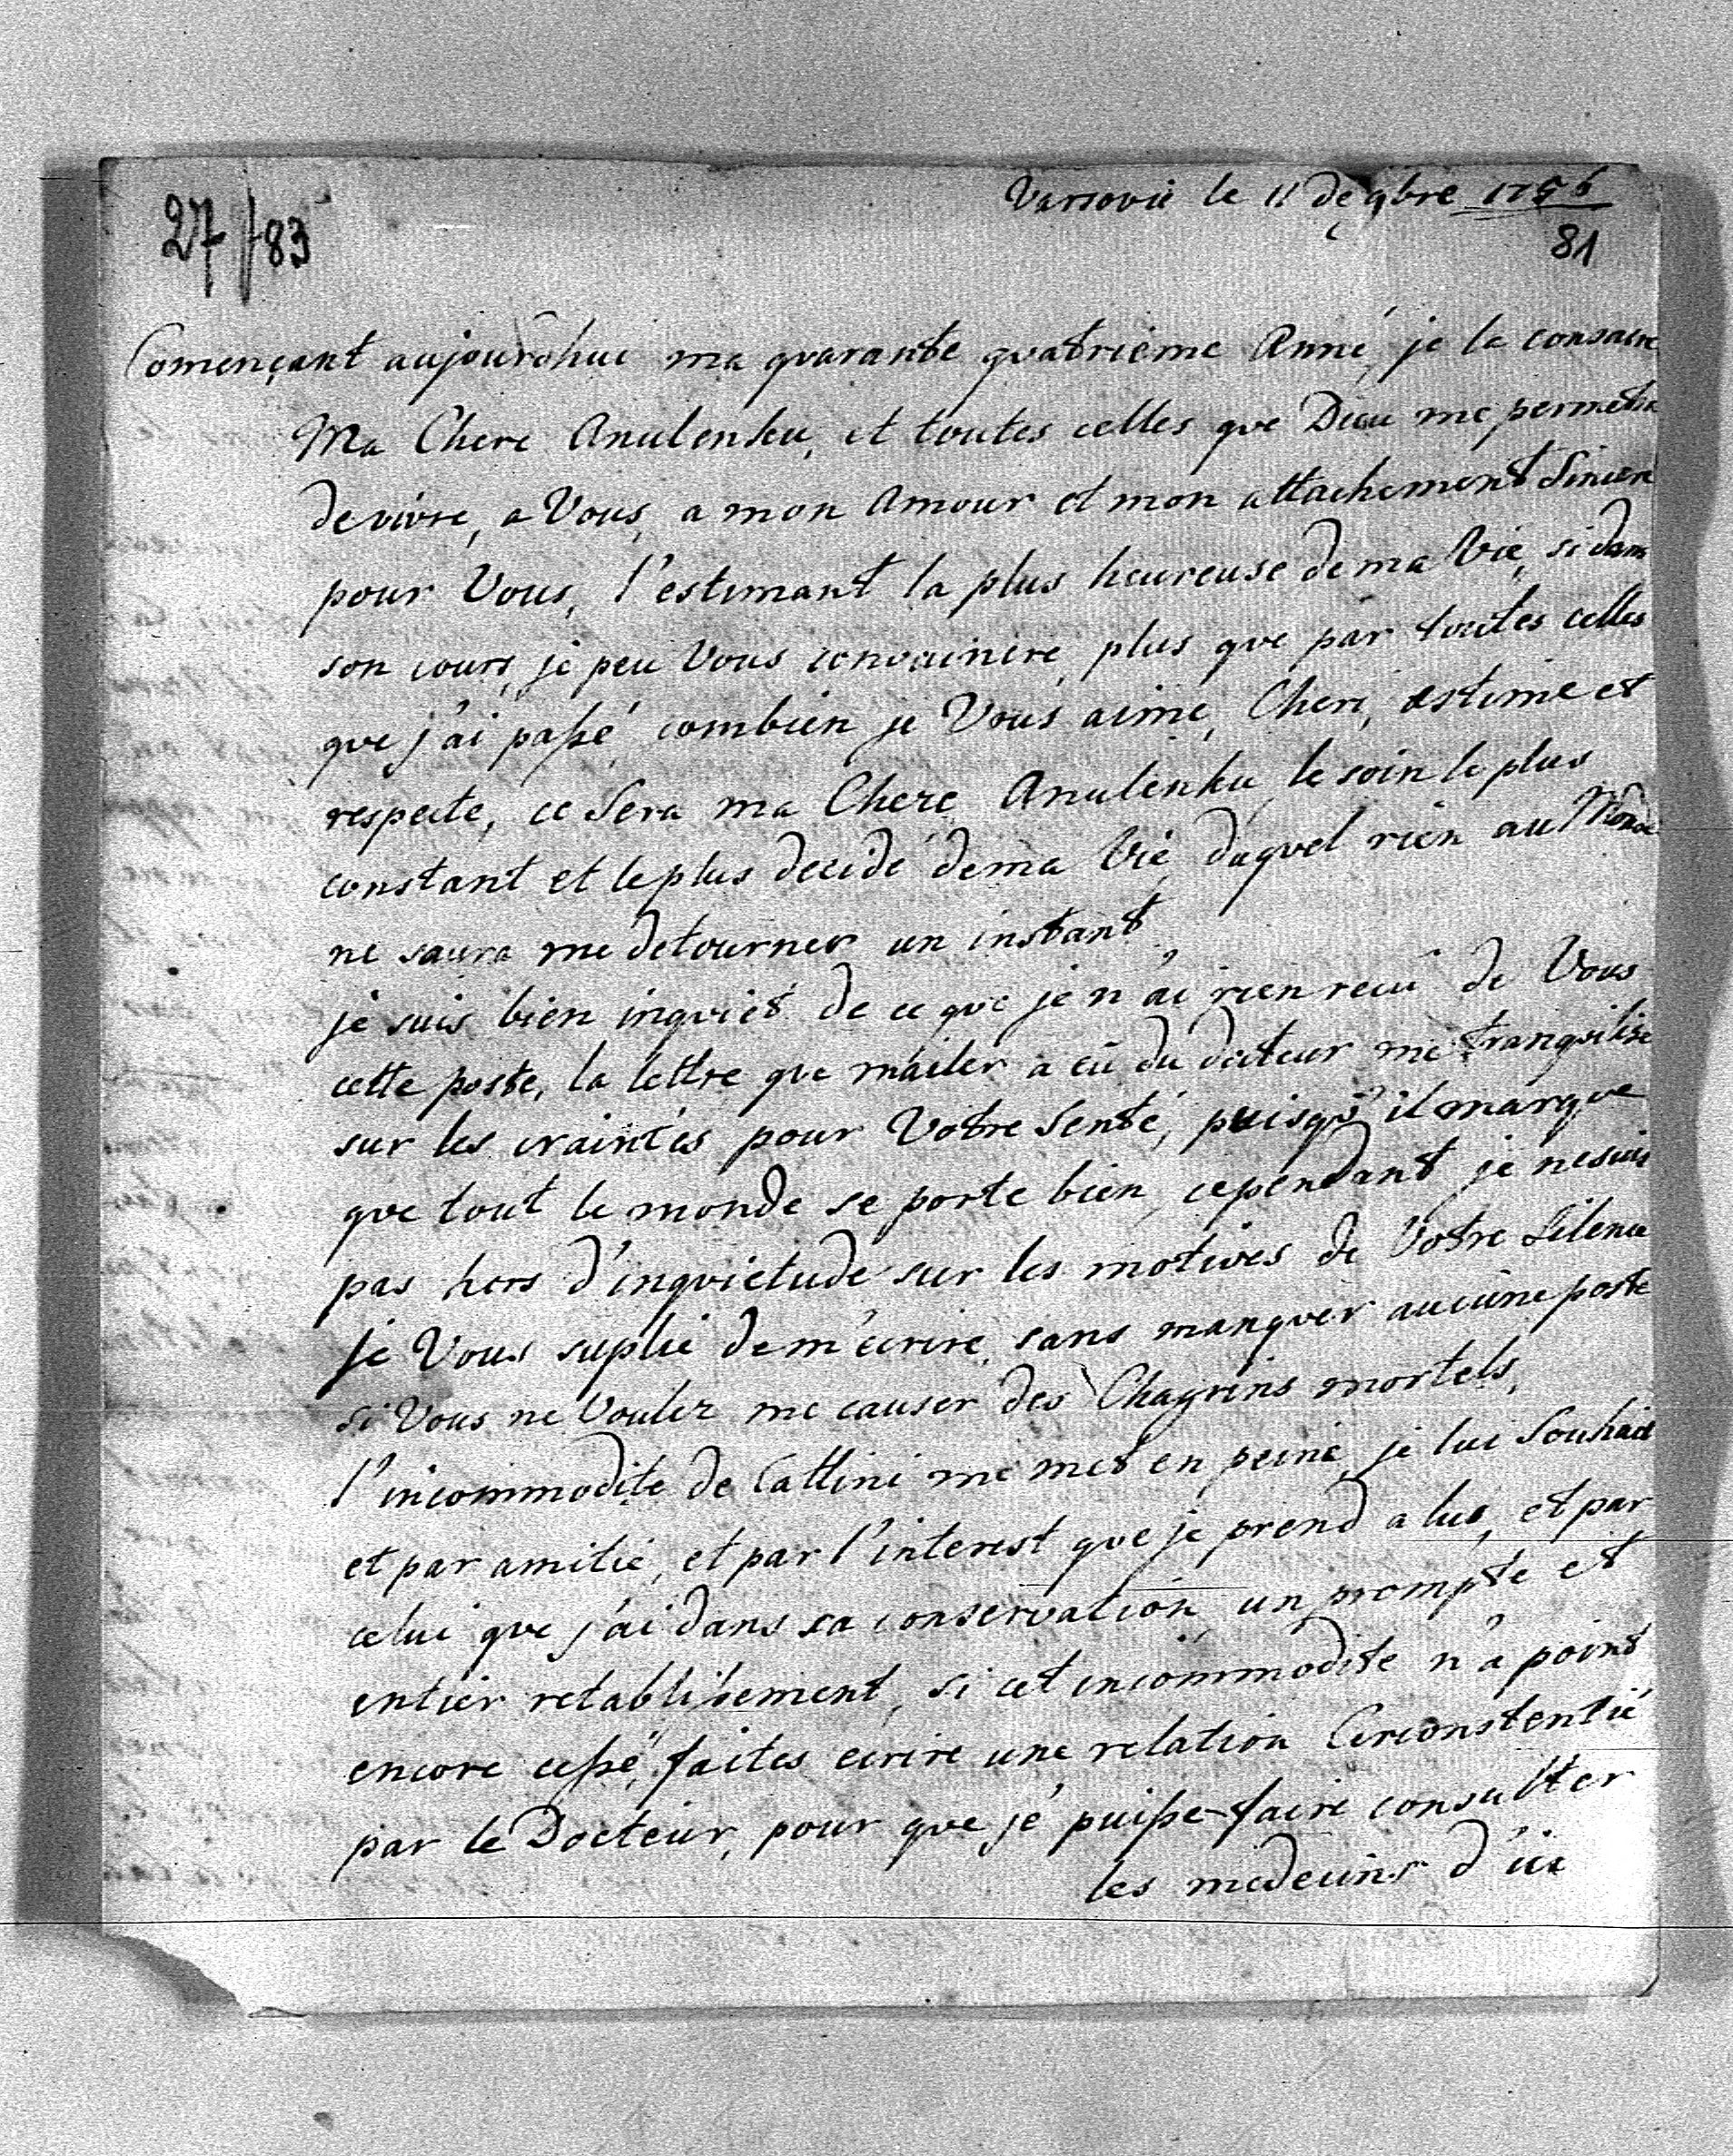 Varsovie le 11 de 9bre 1756
27/83
81
Començant aujourdhui ma quarante quatrieme Année, je la consacre
Ma Chere Anulenku, et toutes celles que Dieu me permetra
de vivre, a Vous, a mon Amour et mon attachement Sincere
pour Vous, l'estimant la plus heureuse de ma Vie, si dans
son cours, je peu Vous convaincre, plus que par toutes celles
que j'ai passé, combien je Vous aime, Cheri, estime et
respecte, ce Sera ma Chere Anulenku, le soin le plus
constant et le plus decidé de ma Vie, duquel rien au Monde
ne saura me detourner un instant
je suis bien inquiet de ce que je n'ai rien recu de Vous
cette poste, la lettre que mailer a eu du docteur me tranquilise
sur les craintes pour Votre Senté, puisqu'il marque
que tout le monde se porte bien, cependant je ne suis
pas hors d'inquietude sur les motives de Votre Silence
je Vous suplie de m'ecrire, sans manquer aucune poste
si Vous ne Voulez me causer des Chagrins mortels,
l'incommodite de Cattini me met en peine, je lui Souhait
et par amitié, et par l'interest que je prend a lui, et par
celui que j'ai dans sa conservation, un prompte et
entier retablissement, si cet incommodite n'a point
encore cessé, faites ecrire une relation Circonstentié
par le Docteur, pour que je puisse faire consulter
les medecins d'ici